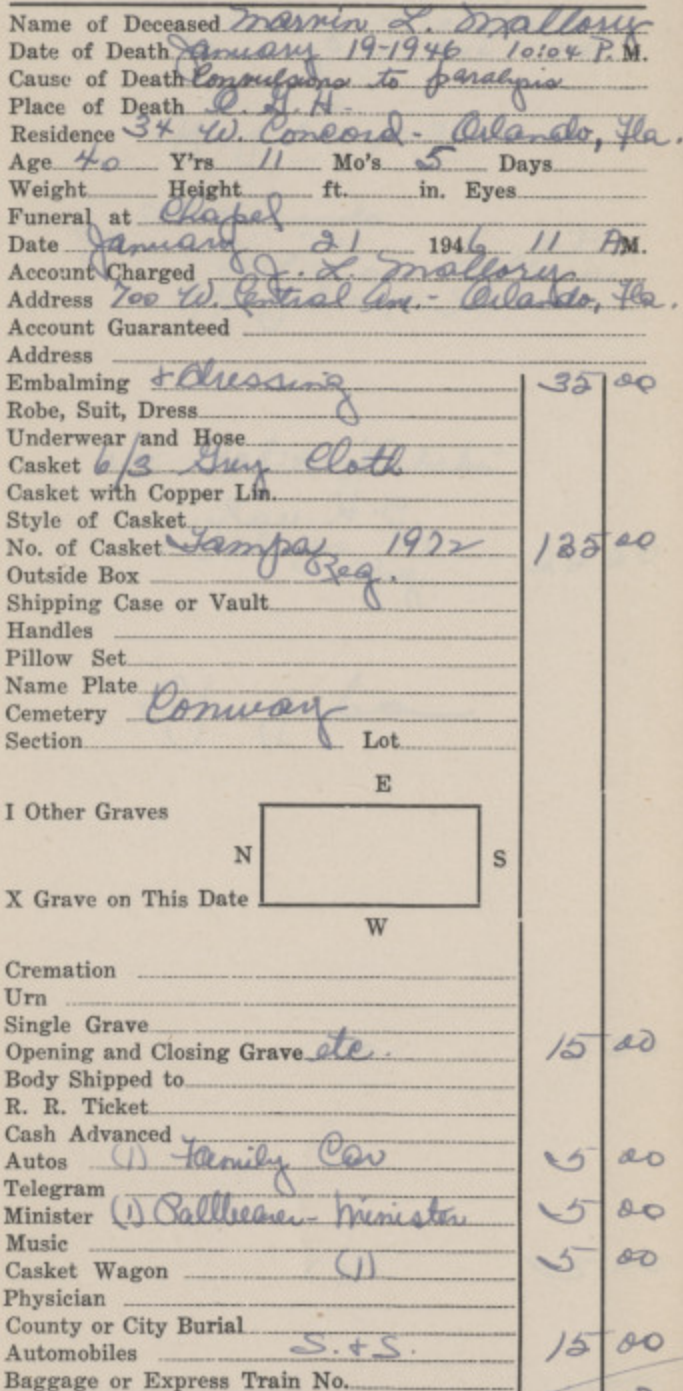 Name of Deceased Marvin L. Mallory
Date of Death January 19-1946 10:04 P.M.
Cause of Death Convulsions to paralysis
Place of Death O. G. H.
Residence 34 W. Concord - Orlando, Fla.
Age 40 Y'rs 11 Mo's 5 Days
Weight Height ft. in. Eyes
Funeral at Chapel
Date January 21 1946 11 AM.
Account Charged J. L. Mallory
Address 700 W. Central Ave. - Orlando, Fla.
Account Guaranteed
Address
Embalming & Dressing 35 00
Robe, Suit, Dress
Underwear and Hose
Casket 6/3 Grey Cloth
Casket with Copper Lin.
Style of Casket
No. of Casket Tampa 1972 135 00
Outside Box Reg.
Shipping Case or Vault
Handles
Pillow Set
Name Plate
Cemetery Conway
Section Lot
E
I Other Graves
N S
X Grave on This Date
W
Cremation
Urn
Single Grave
Opening and Closing Grave etc. 15 00
Body Shipped to
R. R. Ticket
Cash Advanced
Autos (1) Family Car 5 00
Telegram
Minister (1) Pallbearer - Minister 5 00
Music
Casket Wagon (1) 5 00
Physician
County or City Burial
Automobiles S. & S. 15 00
Baggage or Express Train No.